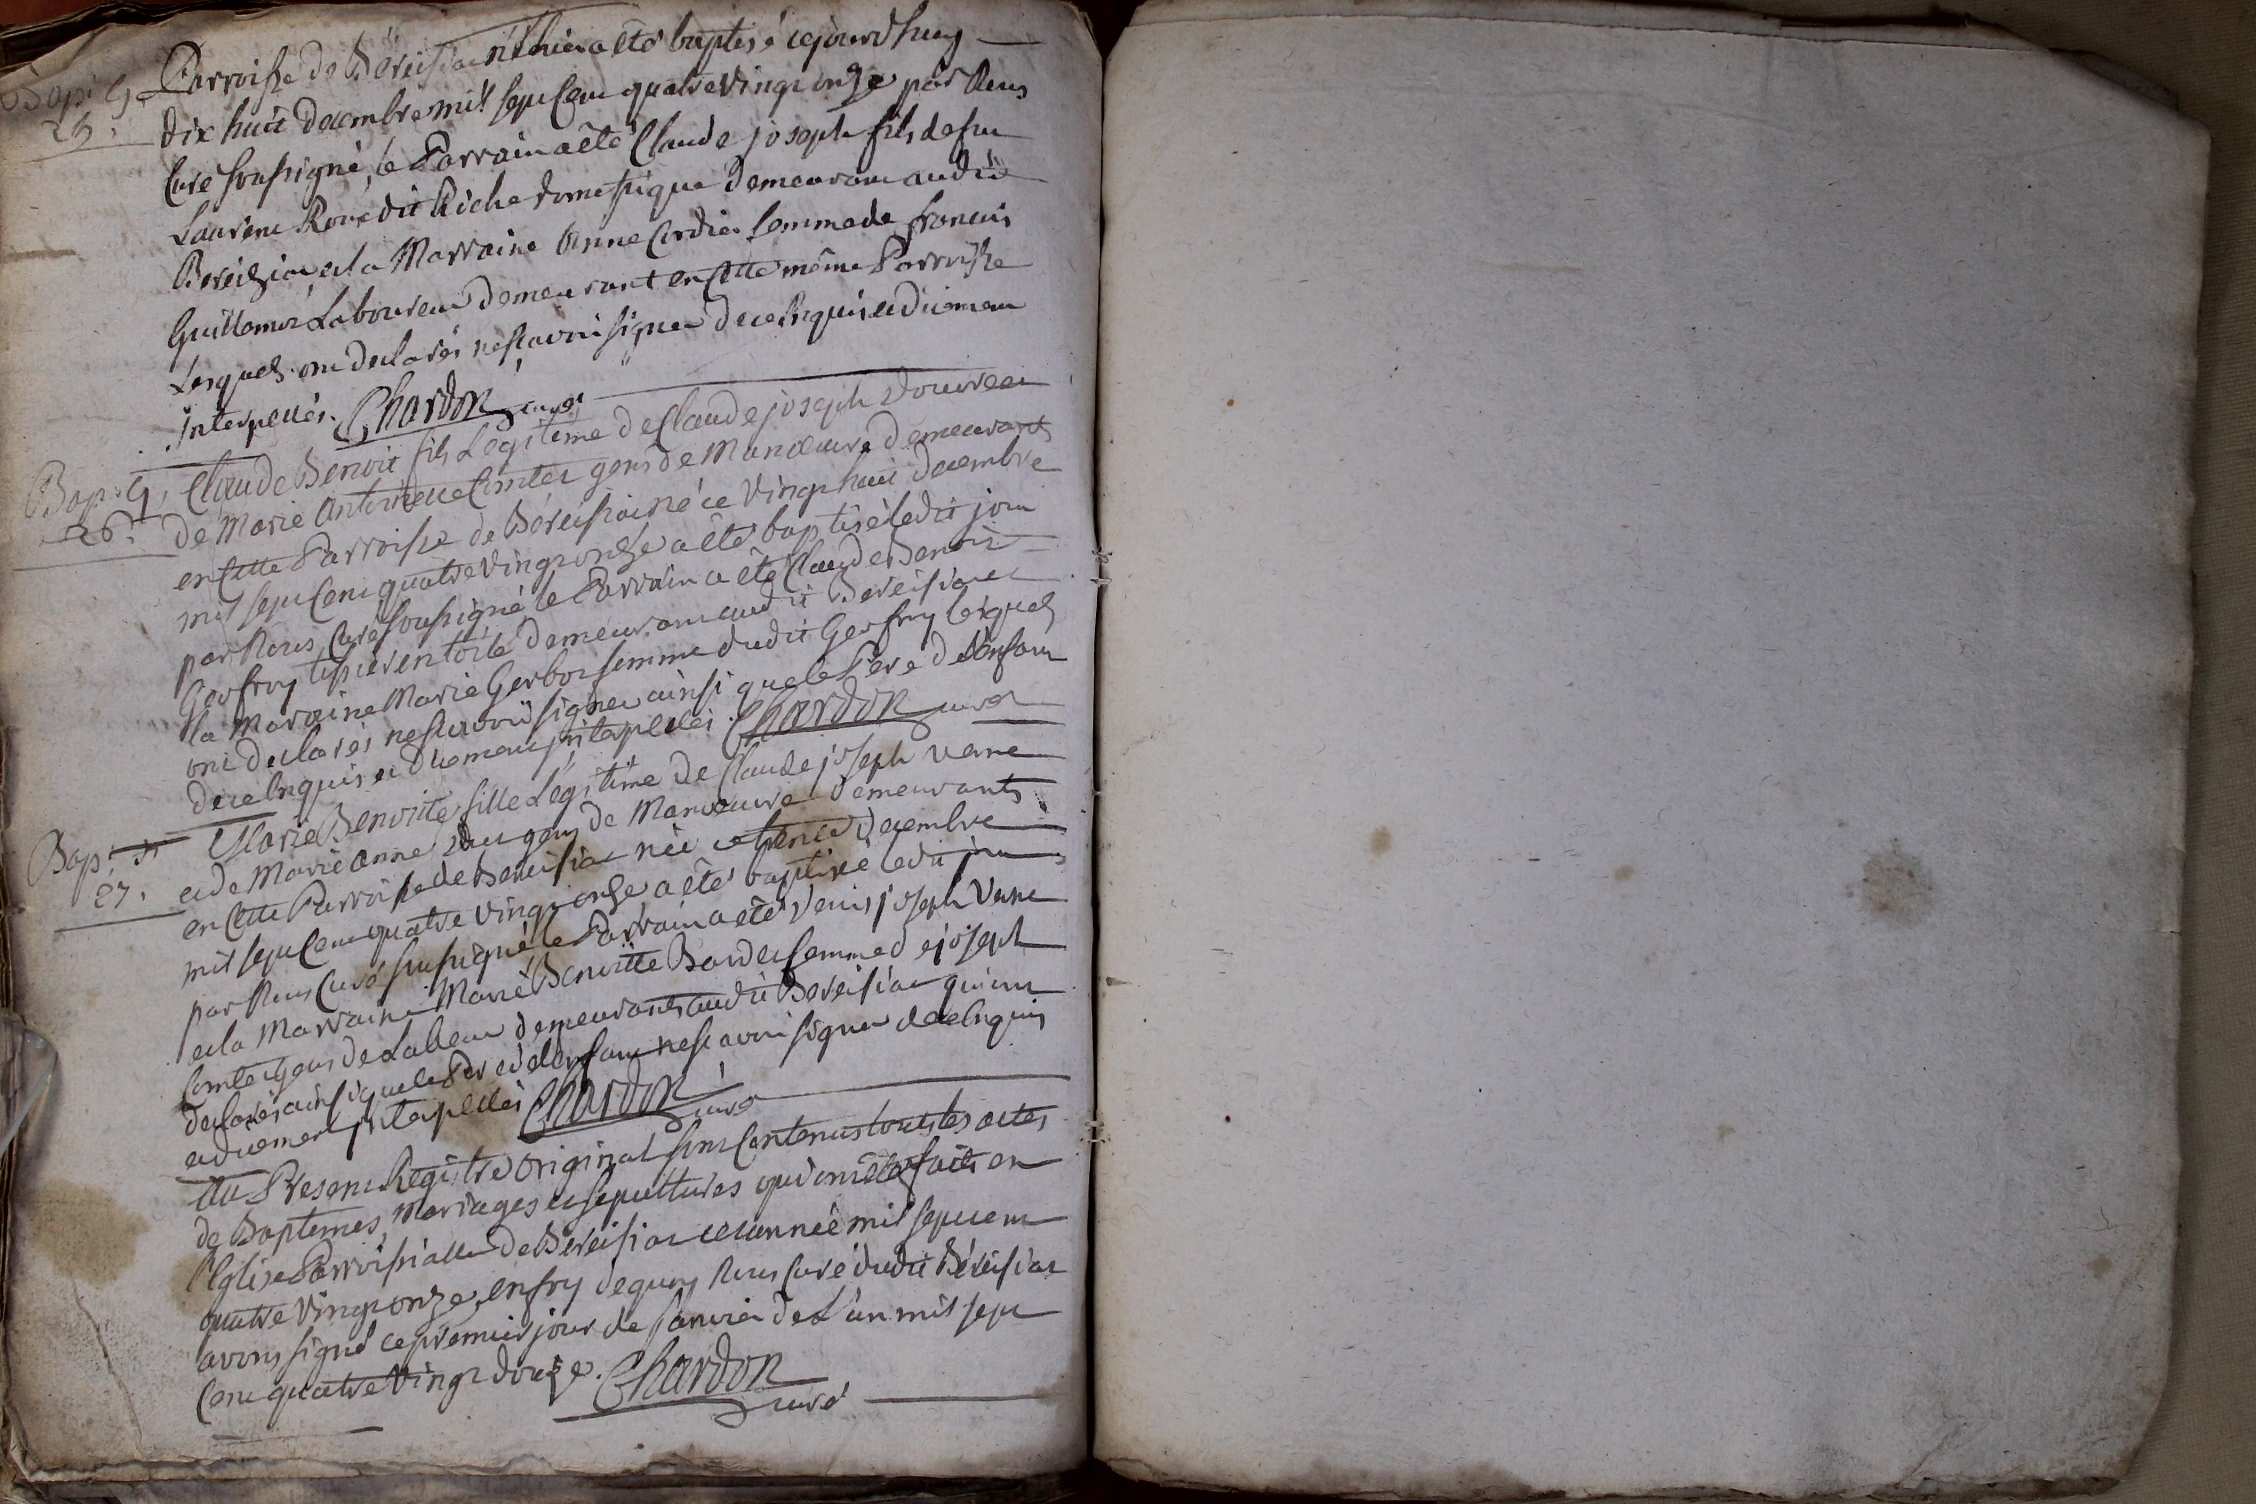 Bap. g.
25.
Parroisse de Béreisiat né hier a été baptisé cejourd'huy
dix huit decembre mil sept cent quatre vingt onze par Nous
Curé soussigné, le Parrain a été Claude joseph fils de feu
Laurent Roux dit Riche domestique demeurant audit
Bereiziat et la Marraine Anne Cordier femme de francois
Guillemot Laboureur demeurant en cette même Parroisse
Lesquels ont declarés ne scavoir signer de ce Enquis et diement
Interpellés. Chardon curé
Bap. g.
26.
Claude Benoit fils Legitime de Claude joseph
de Marie Antoinette Comtet gens de Manoeuvre demeurants
en cette Parroisse de Béreisiat né ce vingt huit decembre
mil sept cent quatre vingt onze a été baptisé ledit jour
par Nous Curé soussigné le Parrain a été Claude Benoit
Geofroy tissier en toile demeurant audit Bereisiat et
la Maraine Marie Gerbot femme dudit Geofroy lesquels
ont declarés ne scavoir signer ainsi que le Pere de l'enfant
de ce Enquis et diement interpellés. Chardon curé
Bap.
27.
Marie Benoitte fille Légitime de Claude joseph Verne
et de Marie Anne gens de Manoeuvre demeurants
en cette Parroisse de Bereisiat née ce trente decembre
mil sept cent quatre vingt onze a été baptisée ledit jour
par Nous Curé soussigné le Parrain a été Denis joseph Verne
et la Marraine Marie Benoitte Bordet femme de joseph
Comtet gens de Labeur demeurants audit Bereisiat qui ont
declarés ainsi que le Pere de l'enfant ne scavoir signer de ce Enquis
et diement interpellés Chardon curé
Au Present Registre Original sont Contenus tous les actes
de Baptemes, Mariages et sepultures qui ont été faits en
l'Eglise Parroissialle de Bereisiat cette année mil sept cent
quatre vingt onze, en foy de quoy Nous Curé dudit Béreisiat
avons signé ce premier jour de Janvier de L'an mil sept
Cent quatre vingt douze. Chardon
curé